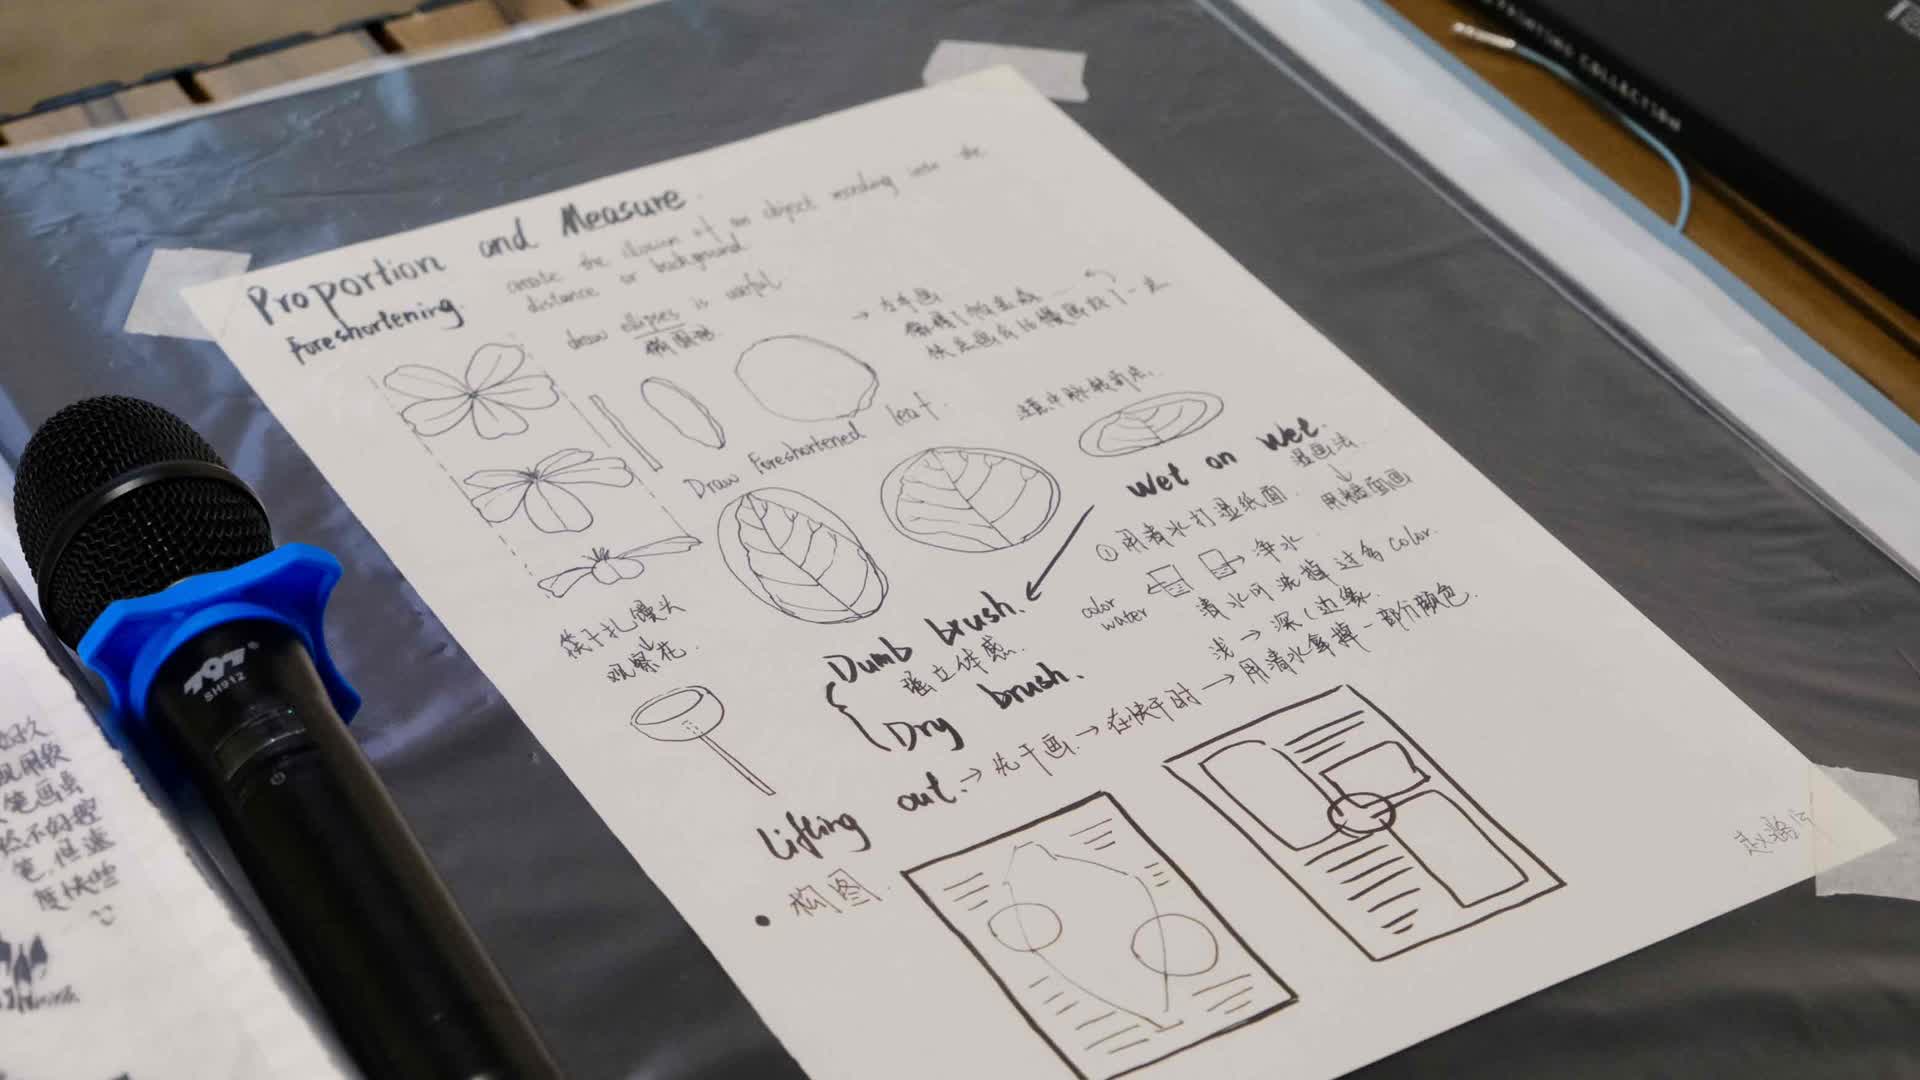 Proportion and Measure.
Foreshortening. create the illusion of an object receding into the
distance or background
draw ellipses is useful.
椭圆形
→
Draw Foreshortened leaf.
Wet on Wet.
湿画法
↓
① 用清水打湿纸面.
color water
→ 净水.
清水可洗掉过多 color.
浅 → 深(边缘.
Dumb brush.
强立体感.
Dry brush.
筷子扎馒头
观察花.
Lifting out. → 先干画. → 在快干时 → 用清水拿掉一部分颜色.
• 构图
SH912
好久
笔画虫
不好控
笔,但速
度快些
COLLECTION